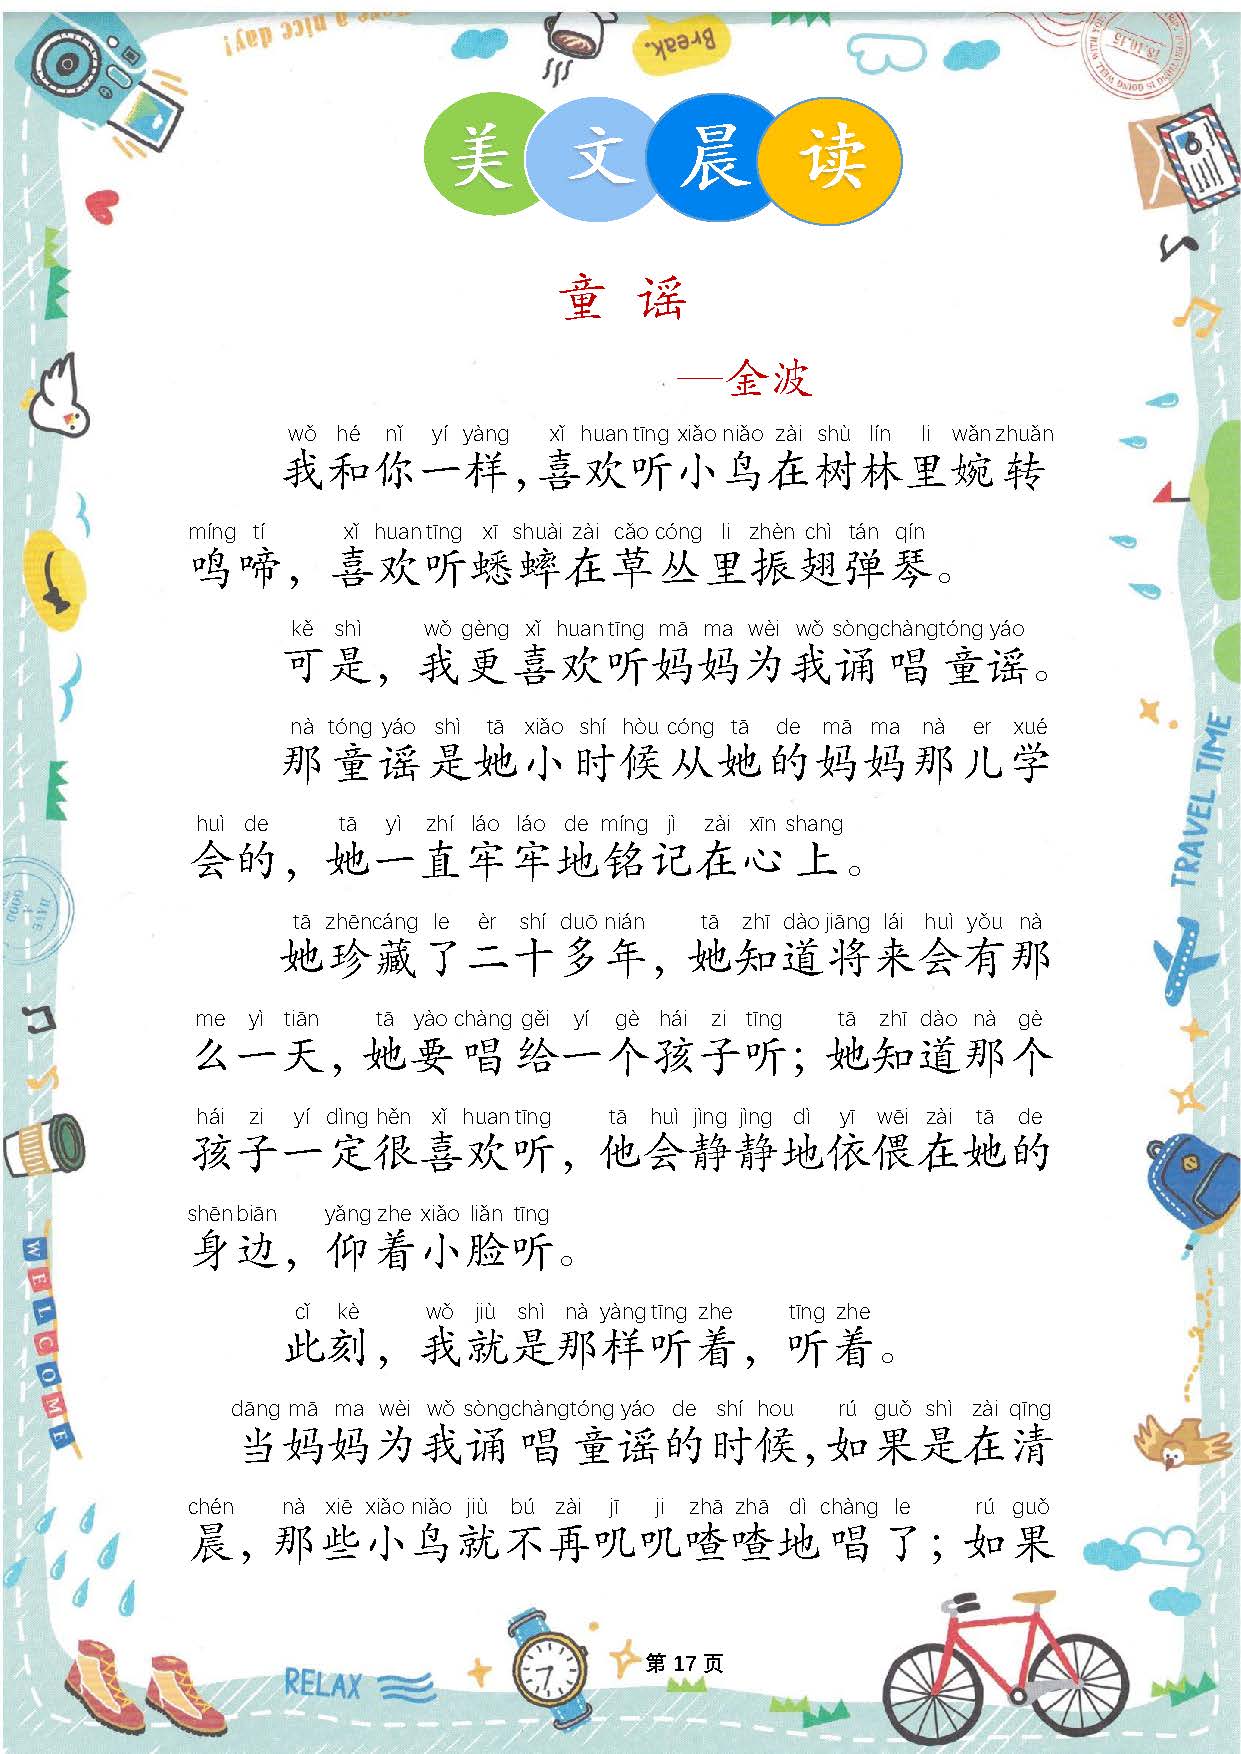 Have a nice day!
Break.
美文晨读
童 谣
—金波
wǒ hé nǐ yí yàng xǐ huan tīng xiǎo niǎo zài shù lín li wǎn zhuǎn
我和你一样,喜欢听小鸟在树林里婉转
míng tí xǐ huan tīng xī shuài zài cǎo cóng li zhèn chì tán qín
鸣啼，喜欢听蟋蟀在草丛里振翅弹琴。
kě shì wǒ gèng xǐ huan tīng mā ma wèi wǒ sòngchàngtóng yáo
可是，我更喜欢听妈妈为我诵唱童谣。
nà tóng yáo shì tā xiǎo shí hòu cóng tā de mā ma nà er xué
那童谣是她小时候从她的妈妈那儿学
huì de tā yì zhí láo láo de míng jì zài xīn shang
会的，她一直牢牢地铭记在心上。
tā zhēncáng le èr shí duō nián tā zhī dào jiāng lái huì yǒu nà
她珍藏了二十多年，她知道将来会有那
me yì tiān tā yào chàng gěi yí gè hái zi tīng tā zhī dào nà gè
么一天，她要唱给一个孩子听；她知道那个
hái zi yí dìng hěn xǐ huan tīng tā huì jìng jìng dì yī wēi zài tā de
孩子一定很喜欢听，他会静静地依偎在她的
shēn biān yǎng zhe xiǎo liǎn tīng
身边，仰着小脸听。
cǐ kè wǒ jiù shì nà yàng tīng zhe tīng zhe
此刻，我就是那样听着，听着。
dāng mā ma wèi wǒ sòngchàngtóng yáo de shí hou rú guǒ shì zài qīng
当妈妈为我诵唱童谣的时候,如果是在清
chén nà xiē xiǎo niǎo jiù bú zài jī ji zhā zhā dì chàng le rú guǒ
晨，那些小鸟就不再叽叽喳喳地唱了；如果
TRAVEL TIME
WELCOME
RELAX
第 17 页